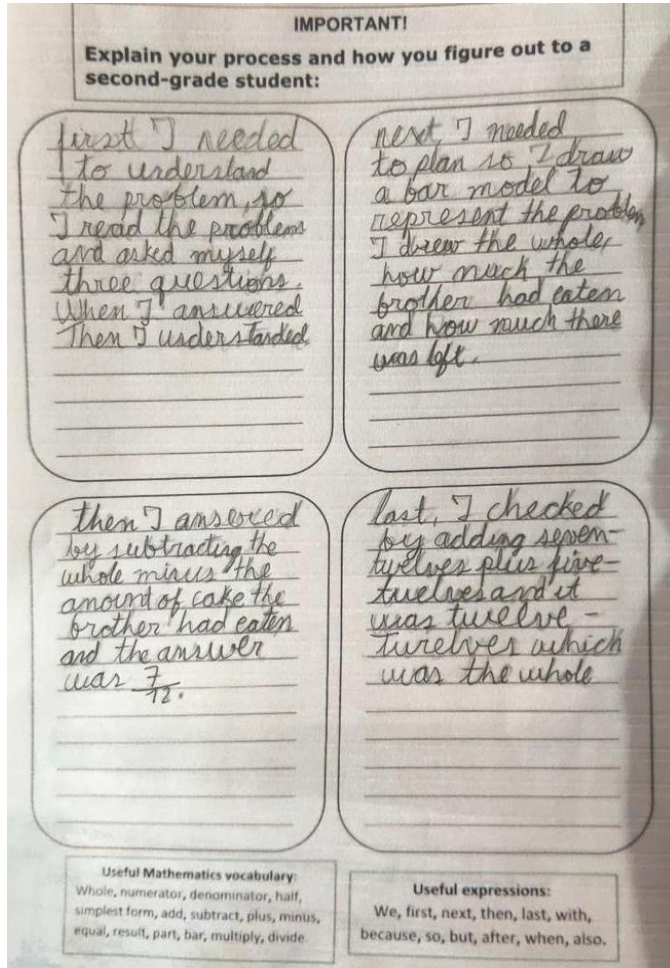 IMPORTANT!
Explain your process and how you figure out to a
second-grade student:
first I needed
to understand
the problem, so
I read the problems
and asked myself
three questions.
When I answered
Then I understanded
next, I needed
to plan so I draw
a bar model to
represent the problem
I drew the whole,
how much the
brother had eaten
and how much there
was left.
then I ansered
by subtracting the
whole minus the
amound of cake the
brother had eaten
and the answer
was 7/12.
last, I checked
by adding seven-
twelves plus five-
twelves and it
was twelve-
twelves which
was the whole
Useful Mathematics vocabulary:
Whole, numerator, denominator, half,
simplest form, add, subtract, plus, minus,
equal, result, part, bar, multiply, divide.
Useful expressions:
We, first, next, then, last, with,
because, so, but, after, when, also.